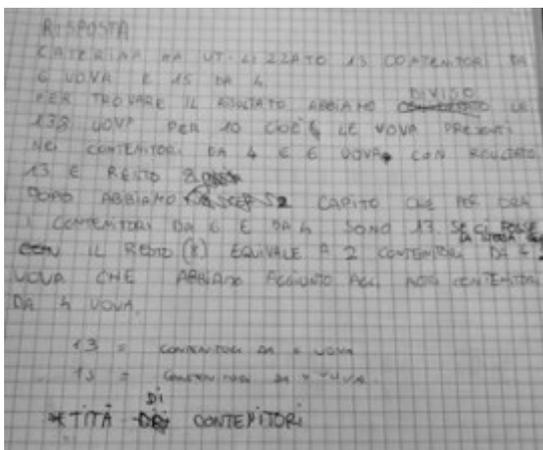 RISPOSTA
CATERINA HA UTILIZZATO 13 CONTENITORI DA
6 UOVA E 15 DA 4
DIVISO
PER TROVARE IL RISULTATO ABBIAMO LE
138 UOVA PER 10 CIOÈ LE UOVA PRESENTI
NEI CONTENITORI DA 4 E 6 UOVA CON RISULTATO
13 E RESTO 8
DOPO ABBIAMO CAPITO CHE PER ORA
I CONTENITORI DA 6 E DA 4 SONO 13. SE CI FOSSE
LA STESSA
IL RESTO (8) EQUIVALE A 2 CONTENITORI DA 4
UOVA CHE ABBIAMO AGGIUNTO AGLI CONTENITORI
DA 4 UOVA.
13 = CONTENITORI DA UOVA
15 = CONTENITORI DA UOVA
DI
TITÀ CONTENITORI